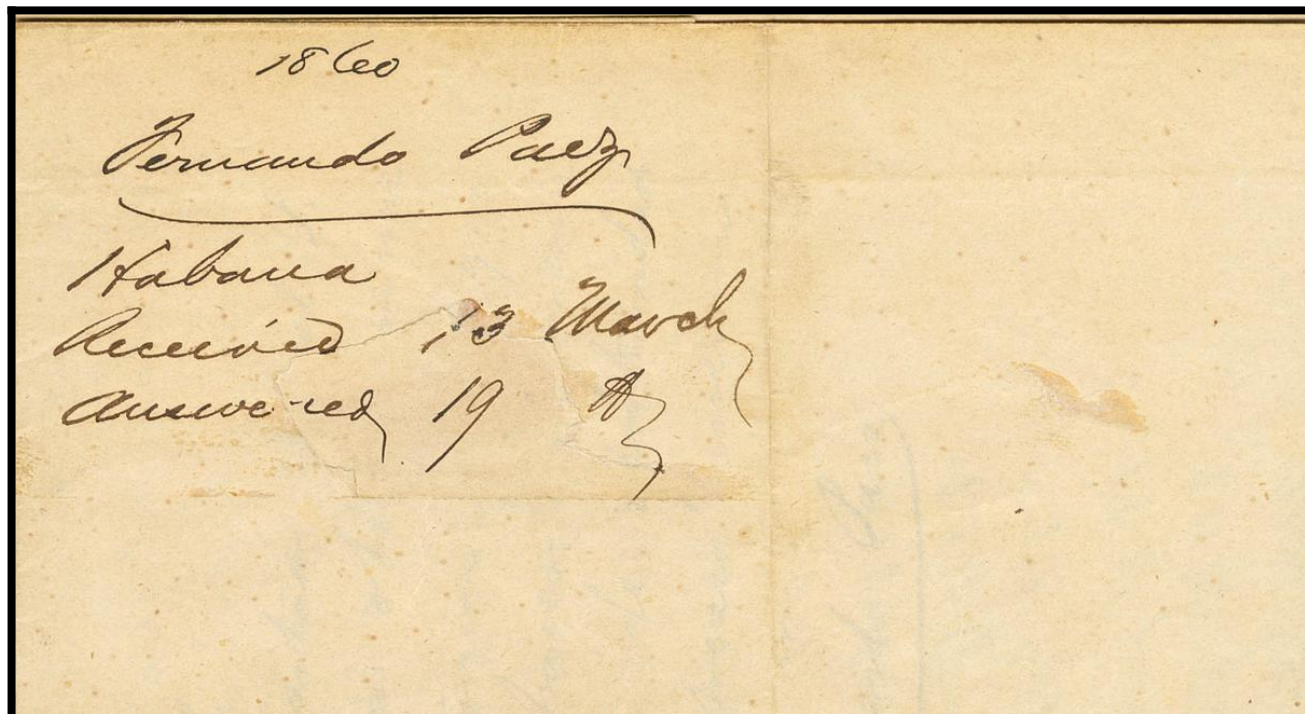 1860
Fernando Paez
Habana
Received 13 March
Answered 19